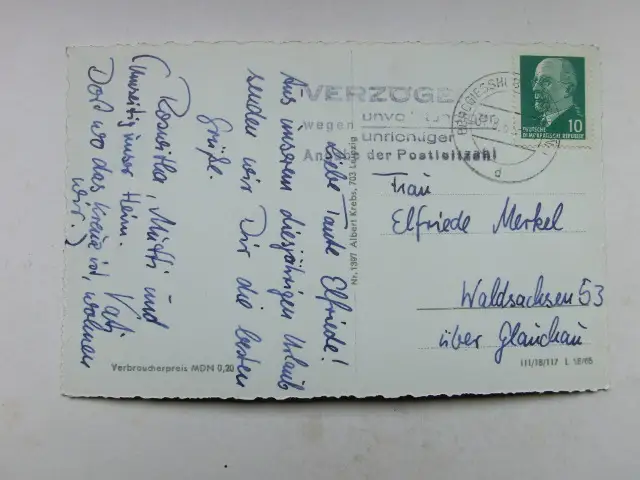 Liebe Tante Elfriede!
Aus unserem diesjährigen Urlaub
senden wir Dir die besten
Grüße.
Roswitha, Mutti und
Vati
(Umseitig unser Heim.
Dort wo das Kreuz ist, wohnen
wir.)
Verbraucherpreis MDN 0,20
Nr. 1397 Albert Krebs, 703 Leipzig
VERZÖGE
wegen
unrichtiger
Angabe der Postleitzahl
BERGGIESSHÜBEL
d
10
DEUTSCHE
DEMOKRATISCHE REPUBLIK
Frau
Elfriede Merkel
Waldsachsen 53
über Glauchau
III/18/117 L 16/65